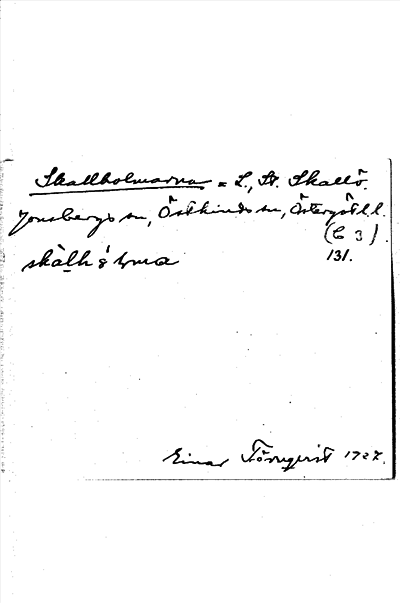 Skallholmarna = L., St. Skallö.
Jonsbergs sn, Östkinds hd, Östergötl. l.
(C 3).
131.
Einar Törnqvist 1927.